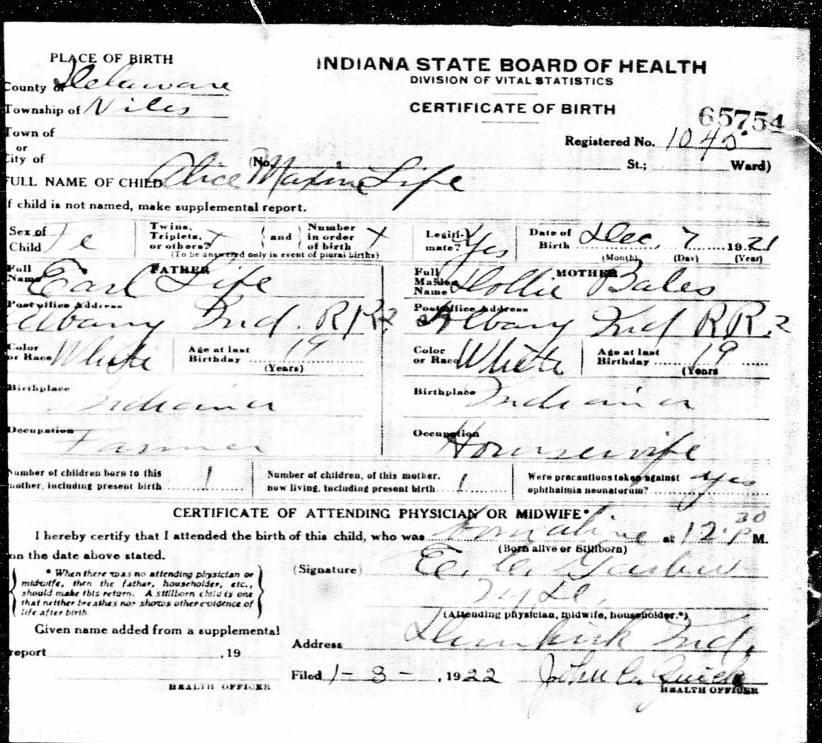 PLACE OF BIRTH
INDIANA STATE BOARD OF HEALTH
DIVISION OF VITAL STATISTICS
County of Delaware
Township of Niles
CERTIFICATE OF BIRTH
65754
Town of
or
City of
Registered No. 1045
(No. St.; Ward)
FULL NAME OF CHILD Alice Maxine Life
If child is not named, make supplemental report.
Sex of Child Fe
Twins, Triplets, or others? x (and) Number in order of birth x
(To be answered only in event of plural births)
Legitimate? Yes
Date of Birth Dec, 7 1921
(Month) (Day) (Year)
FATHER
Full Name Earl Life
MOTHER
Full Maiden Name Dollie Bales
Postoffice Address Albany Ind. R R. 2
Postoffice Address Albany Ind R R. 2
Color or Race White
Age at last Birthday 19
(Years)
Color or Race White
Age at last Birthday 19
(Years)
Birthplace Indiana
Birthplace Indiana
Occupation Farmer
Occupation Housewife
Number of children born to this mother, including present birth 1
Number of children, of this mother, now living, including present birth 1
Were precautions taken against ophthalmia neonatorum? yes
CERTIFICATE OF ATTENDING PHYSICIAN OR MIDWIFE*
I hereby certify that I attended the birth of this child, who was born alive at 12:30 P M.
(Born alive or Stillborn)
on the date above stated.
* When there was no attending physician or
midwife, then the father, householder, etc.,
should make this return. A stillborn child is one
that neither breathes nor shows other evidence of
life after birth.
(Signature) E. C.
(Attending physician, midwife, householder.*)
Given name added from a supplemental
report , 19
HEALTH OFFICER
Address Dunkirk Ind.
Filed 1-3-, 1922 John C. Quick
HEALTH OFFICER